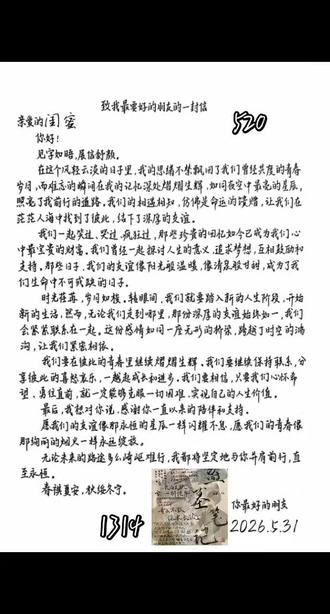 致我最要好的朋友的一封信
亲爱的闺蜜
520
你好！
见字如晤，展信舒颜。
在这个风轻云淡的日子里，我的思绪不禁飘回了我们曾经共度的青春
岁月，那难忘的瞬间在我的记忆深处熠熠生辉，如同夜空中最亮的星辰，
照亮了我前行的道路。我们的相遇相知，仿佛是命运的馈赠，让我们在
茫茫人海中找到了彼此，结下了深厚的友谊。
我们一起哭过、笑过、疯狂过，那些珍贵的回忆如今已成为我们心
中最宝贵的财富。我们曾经一起探讨人生的意义，追求梦想，互相鼓励和
支持。那些日子，我们的友谊像阳光般温暖，像清泉般甘甜，成为了我
们生命中不可或缺的日子。
时光荏苒，岁月如梭。转眼间，我们就要踏入新的人生阶段，开始
新的生活。然而，无论我们走到哪里，那份深厚的友谊始终如一，我们
会紧紧联系在一起。这份感情如同一座无形的桥梁，跨越了时空的鸿
沟，让我们紧密相依。
我们要在彼此的青春里继续熠熠生辉。我们要继续保持联系，分
享彼此的喜怒哀乐，一起成长和进步。我们要相信，只要我们心怀希
望，勇往直前，就一定能够克服一切困难，实现自己的人生价值。
最后，我想对你说，感谢你一直以来的陪伴和支持。
愿我们的友谊像那永恒的星辰一样闪耀不息，愿我们的青春像
那绚丽的烟火一样永远绽放。
无论未来的路途多么崎岖难行，我都将坚定地与你并肩前行，直
至永恒。
春祺夏安，秋绥冬宁。
1314
你最好的朋友
2026.5.31